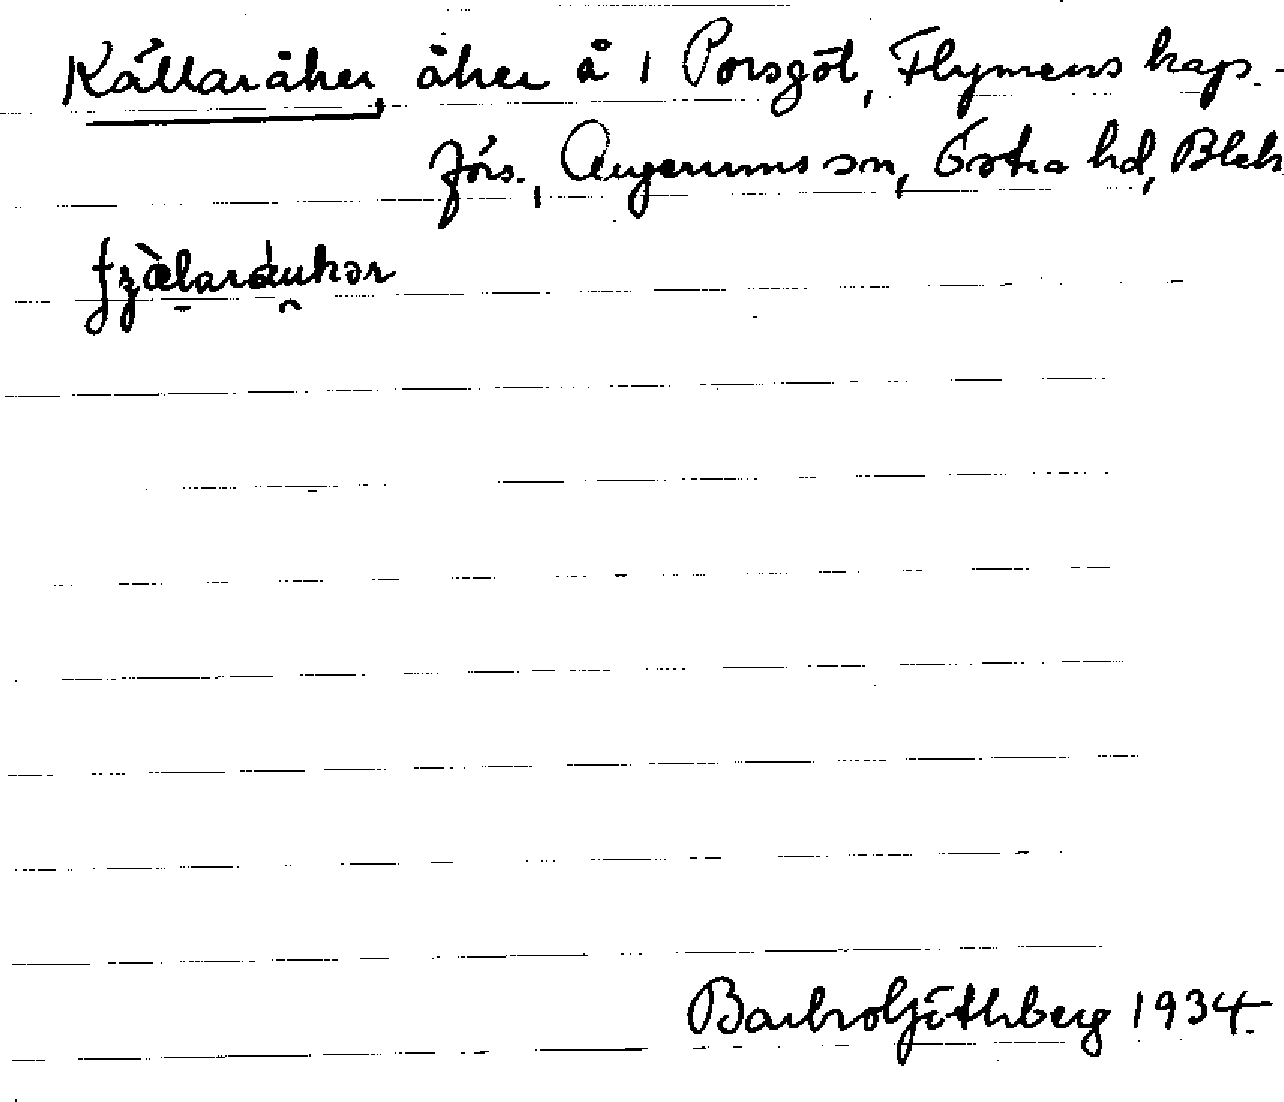 Källaråker, åker å 1 Porsgöl, Flymens kap-
förs., Augerums sn, Östra hd, Blek
Barbro Göthberg 1934